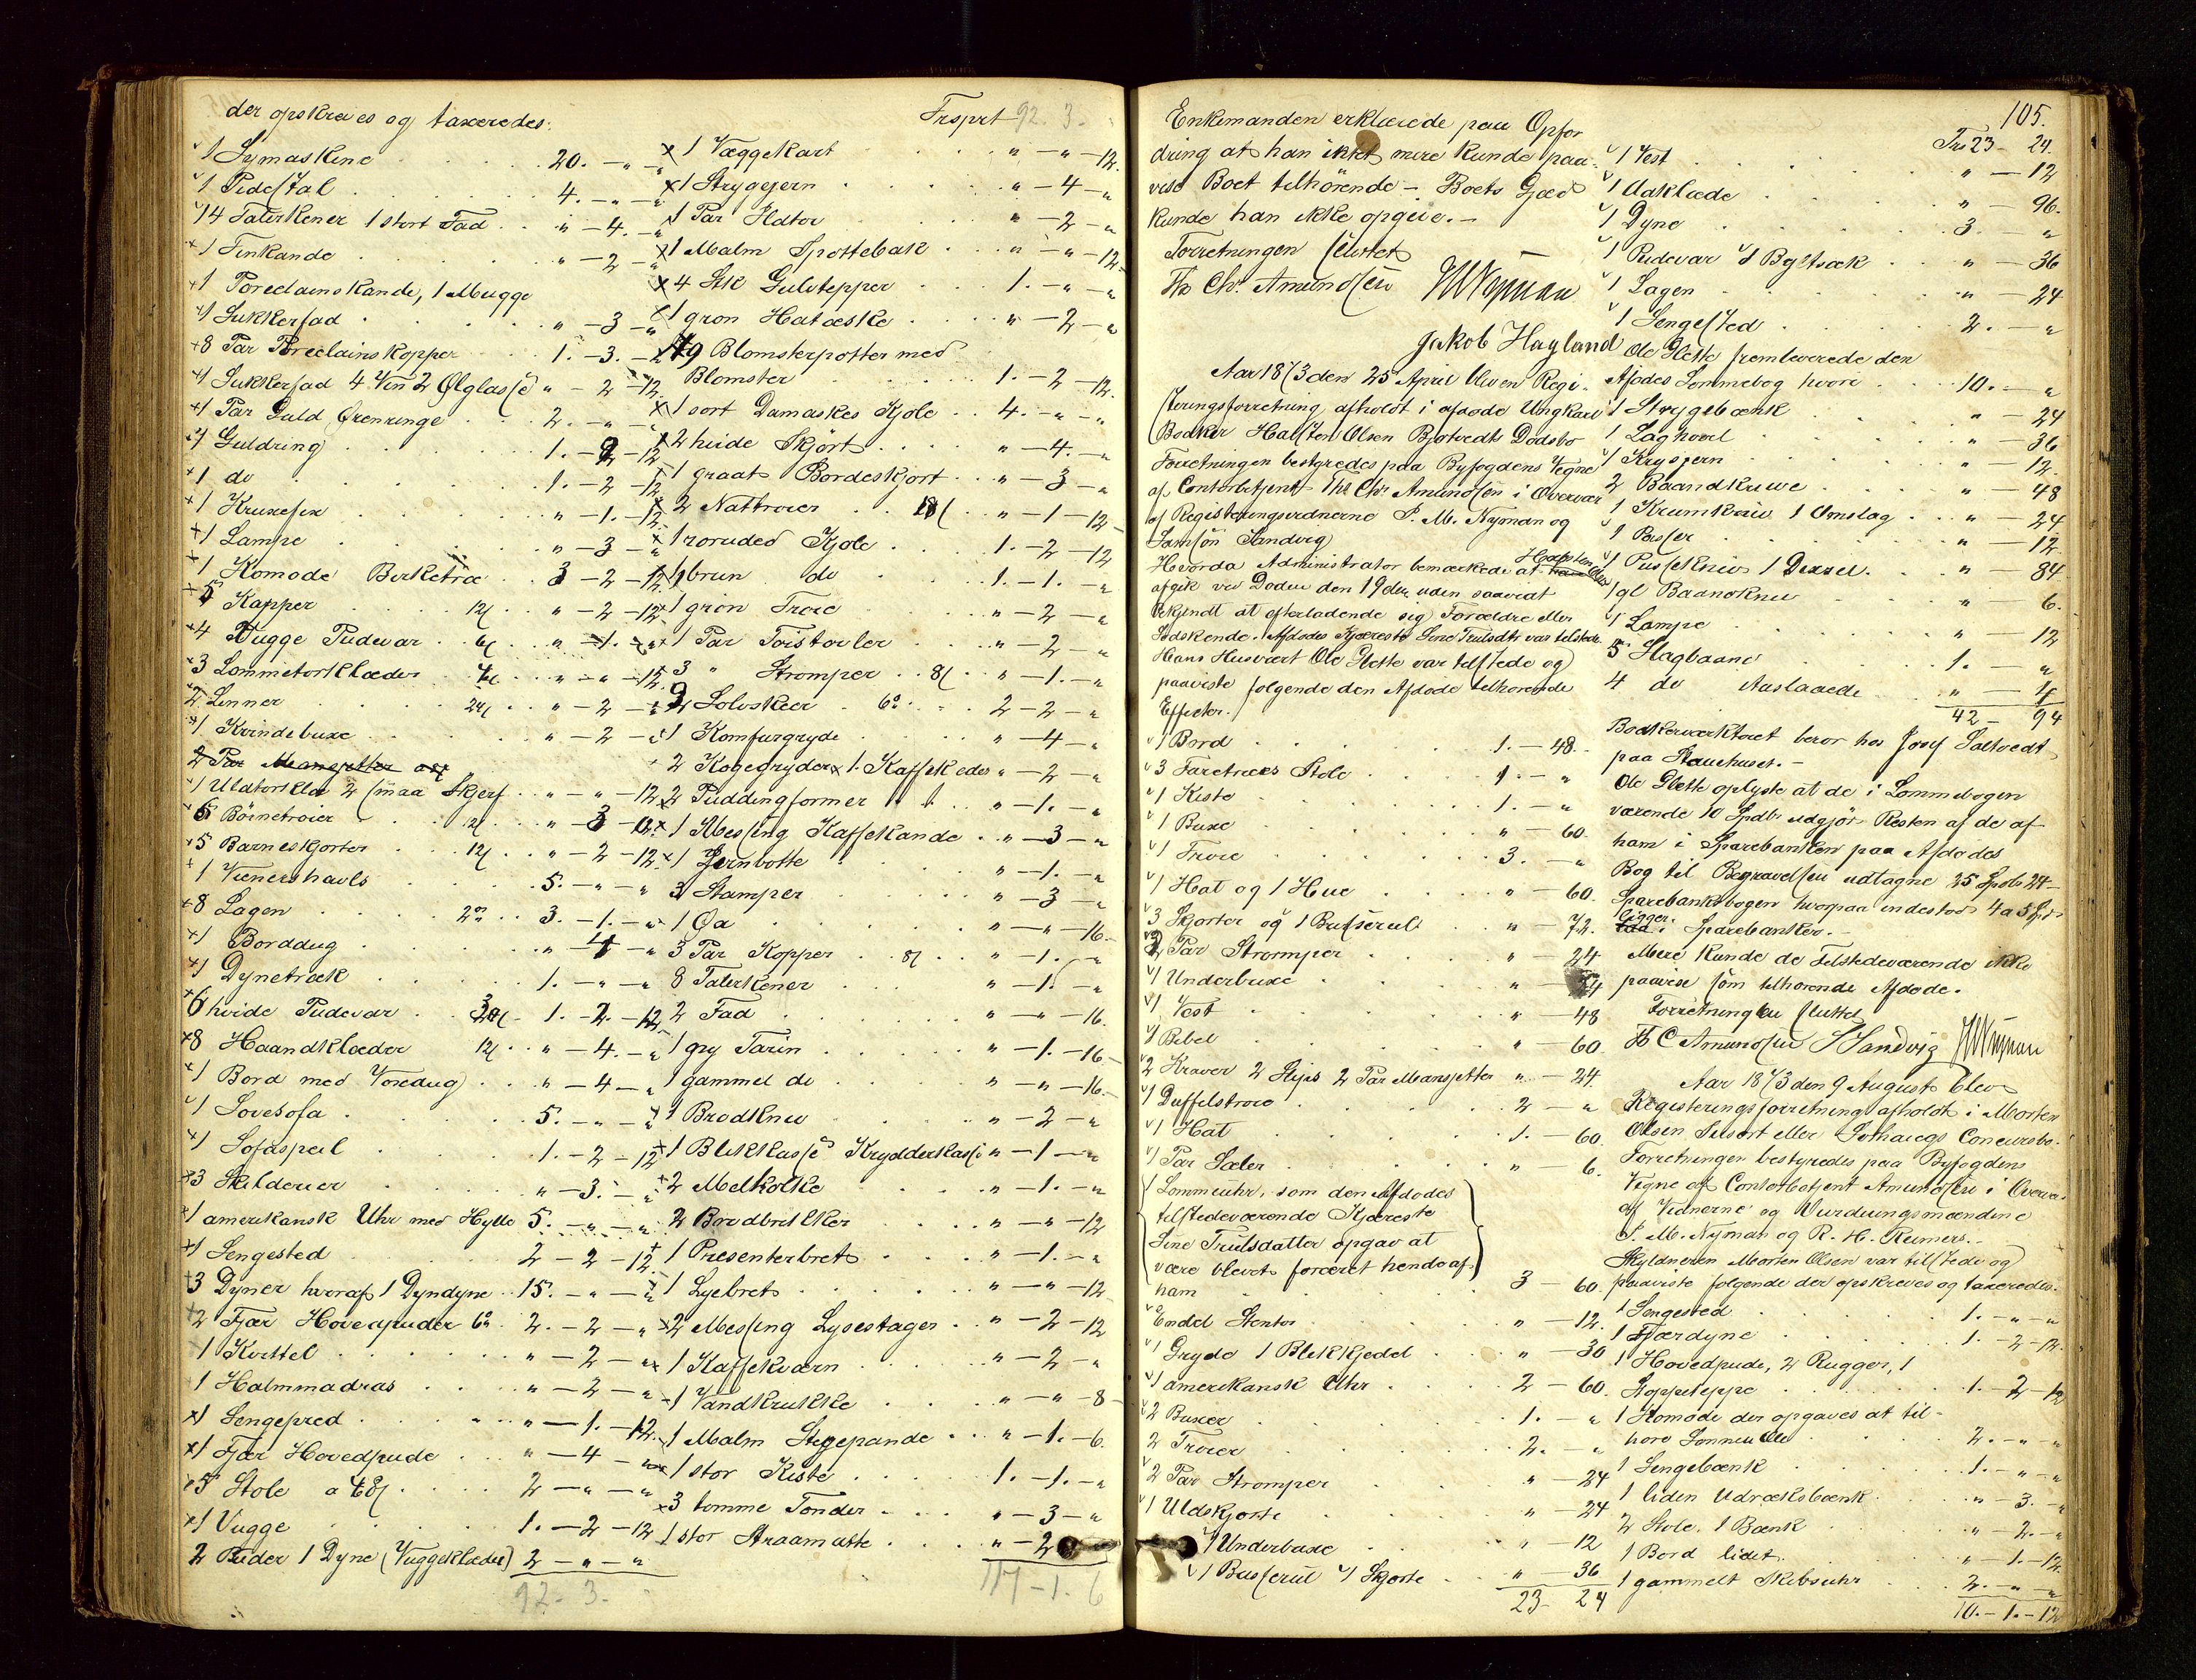 der opskreves og taxeredes:
1 Symaskine 20. - " - "
1 Pidestal 4. - " - "
14 Talerkener 1 stort Fad " - 4. - "
1 Tinkande " - 2 - "
1 Porcelainskande, 1 Mugge
1 Sukkerfad " - 3 - "
8 Par Porcelainskopper 1. - 3. - 12
1 Sukkerfad 4 Vin 2 Ølglasse " - 2 - 12
1 Par Guld Ørenringe 2. - " - "
1 Guldring 1. - 2 - 12
1 do 1. - 2 - 12
1 Kruxefix " - 1. - 12
1 Lampe " - 3 - "
1 Komode Birketræ 3 - 2 - 12
5 Kapper 12ß " - 2 - 12
4 Vugge Pudevar 6ß " - 1. - "
3 Lommetorklæder 4ß " - " - 12
2 Linner 24ß " - 2 - "
1 Kvindebuxe " - 2 - "
2 Par Mansjetter og
1 Uldtorklæ 2 smaa Skjerf " - " - 12
6 Börnetroier 12ß " - 3 - "
5 Barneskjorter 12ß " - 2 - 12
1 Vienershavls 5. - " - "
8 Lagen 3. - 1. - "
1 Borddug " - 4 - "
1 Dynetræk 1. - " - "
6 hvide Pudevar 1. - 2. - 12
8 Haandklæder 12ß " - 4. - "
1 Bord med Voxdug " - 4 - "
1 Sovesofa 5. - " - "
1 Sofaspeil 1. - 2 - 12
3 Skilderier " - 3. - "
1 amerikansk Uhr med Hylle 5. - " - "
1 Sengested 2 - 2 - 12
3 Dyner hvoraf 1 Dyndyne 15. - " - "
2 Fjær Hovedpuder 2. - 2 - "
1 Kvittel " - 2 - "
1 Halmmadras " - 2 - "
1 Sengepred " - 1. - 12
1 Fjær Hovedpude " - 4 - "
5 Stole a 48ß 2 - " - "
1 Vugge 1. - 2 - 12
2 Puder 1 Dyne (Vuggeklæder) 2 - " - "
92. 3. -
Trsprt 92. 3.
1 Væggekart " - " - 12.
1 Strygejern " - 4 - "
1 Par Ildtor " - 2 - "
1 Malm Spottebak " - " - 12
4 Stk Gulvtepper 1. - " - "
1 gron Hatæske " - 2 - "
19 Blomsterpotter med
Blomster 1. - 2 - 12.
1 sort Damaskes Kjole 4. - " - "
2 hvide Skjört " - 4. - "
1 graat Bordeskjort " - 3 - "
2 Nattroier 18ß " - 1 - 12
1 roruded Kjole 1. - 2 - 12
1 brun do 1. - 1. - "
1 grön Troie " - 2 - "
1 Par Toistovler " - 2 - "
3 " Stromper 8ß " - 1. - "
2 Solvskeer 2 - 2 - "
1 Komfurgryde " - 4 - "
2 Kogegryder 1 Kaffekedel " - 2 - "
2 Puddingformer " - 1. - "
1 Messing Kaffekande " - 3 - "
1 Jernbotte " - 1. - "
3 Stamper " - 3 - "
1 Øx " - " - 16.
3 Par Kopper 8ß " - 1. - "
8 Talerkener " - 1. - "
2 Fad " - " - 16.
1 gry Tarin " - 1. - 16
1 gammel do " - " - 16.
1 Brodkniv " - 2 - "
1 Blikkasse Krydderkasse " - 1 - "
2 Melkolke " - 1. - "
2 Brodbrikker " - " - 12
1 Presenterbret " - 1. - "
1 Lyebret " - " - 12
2 Messing Lysestager " - 2 - 12
1 Kaffekværn " - 2 - "
1 Vandkrukke " - " - 8
1 Malm Stegepande " - 1. - 6.
1 stor Kiste 1. - 1. - "
3 tomme Tonder " - 3 - "
1 stor Straamatte " - 2
117 - 1. 6
105.
Enkemanden erklærede paa Opfor
dring at han ikke mere kunde paa-
vise Boet tilhörende - Boets Gjæld
kunde han ikke opgive. -
Forretningen sluttet
Th Chr Amundsen JMNyman
Jakob Hayland
Aar 1873 den 25 April blev en Regi-
steringsforretning afholdt i afdøde Ungkarl
Bodker Halsten Olsen Bjotvedts Dødsbo
Forretningen bestyredes paa Byfogdens Vegne
af Contorbetjent Th Chr Amundsen i Overvær
af Registeringsvidnerne J. M. Nyman og
Samson Sandvig
Hvorda Administrator bemærkede at Halsten Olsen
afgik ved Doden den 19de uden saavidt
bekjendt at efterladende sig Forældre eller
Sodskende. Afdodes Kjæreste Sine Trulsdtr var tilstede.
Hans Husvært Ole Glette var tilstede og
paaviste folgende den Afdöde tilhorende
Effecter.
1 Bord 1. - 48.
3 Faretræes Stole 1. - "
1 Kiste 1. - "
1 Buxe " - 60.
1 Troie 3. - "
1 Hat og 1 Hue " - 60.
3 Skjorter og 1 Busserul " - 72.
2 Par Strømper " - 24
1 Underbuxe " - 24
1 Vest " - 48
1 Bibel " - 60.
2 Kraver 2 Slips 2 Par Mansjetter " - 24.
1 Duffelstroie 2 - "
1 Hat 1. - 60.
1 Par Sæler " - 6.
1 Lommeuhr, som den Afdodes
tilstedeværende Kjæreste
Sine Trulsdatter opgav at
være blevet foræret hende af
ham 3 - 60.
Endel Stentoi " - 12.
1 Gryde 1 Blikkjedel " - 30
1 amerikansk Uhr 2 - 60.
2 Buxer 1. - "
2 Troier 2. - "
2 Par Stromper " - 24
1 Uldskjorte " - 24
1 Underbuxe " - 12
1 Busserul 1 Skjorte " - 36
23 - 24
Trs 23 - 24.
1 Vest " - 12
1 Aaklæde " - 96.
1 Dyne 3. - "
1 Pudevar 1 Byltsæk " - 36
1 Lagen " - 24
1 Sengested 2. - "
Ole Glette fremleverede den
Afdodes Lommebog hvori 10. - "
1 Strygebænk " - 24
1 Laghovel " - 36
1 Krysjern " - 12.
2 Baandkruve " - 48
1 Krumkniv 1 Omslag " - 24
1 Passer " - 12.
1 Pudsekniv 1 Dexxel. " - 84
1 gl Baandkniv " - 6.
1 Lampe " - 12
5 Slagbaand 1. - "
4 do Aaslaaede " - 4
42 - 94
Bodkerværktoiet beror hos Josef Saltvedt
paa Stauehuset. -
Ole Glette oplyste at de i Lommebogen
værende 10 Spdlr udgjør Resten af de af
ham i Sparebanken paa Afdodes
Bog til Begravelsen udtagne 25 Spdlr 24 -
Sparebankbogen hvorpaa indestod 4 a 5 Spd
ligger i Sparebanken. -
Mere kunde de Tilstedeværende ikke
paavise som tilhorende Afdode.
Forretningen sluttet
Th C Amundsen S Sandvig JMNyman
Aar 1873 den 9 August blev
Registeringsforretning afholdt i Morten
Olsen Susort eller Sothaugs Concursbo.
Forretningen bestyredes paa Byfogdens
Vegne af Contorbetjent Amundsen i Overvær
af Vidnerne og Vurderingsmændene
J. M. Nyman og R. H. Reimers. -
Skyldneren Morten Olsen var tilstede og
paaviste folgende der opskreves og taxeredes.
1 Sengested 1. - " - "
1 Fjærdyne 1. - 2 - 12.
1 Hovedpude, 2 Rugger, 1
Koppeteppe 1. - 2 - 12
1 Komode der opgaves at til-
hore Sonnen Ole 2. - " - "
1 Sengebænk 1. - " - "
1 liden Udræksbænk " - 3. - "
2 Stole, 1 Bænk " - 2. - "
1 Bord lidet " - 1. - 12.
1 gammelt Skibsuhr 2. - " - "
10. - 1. - 12